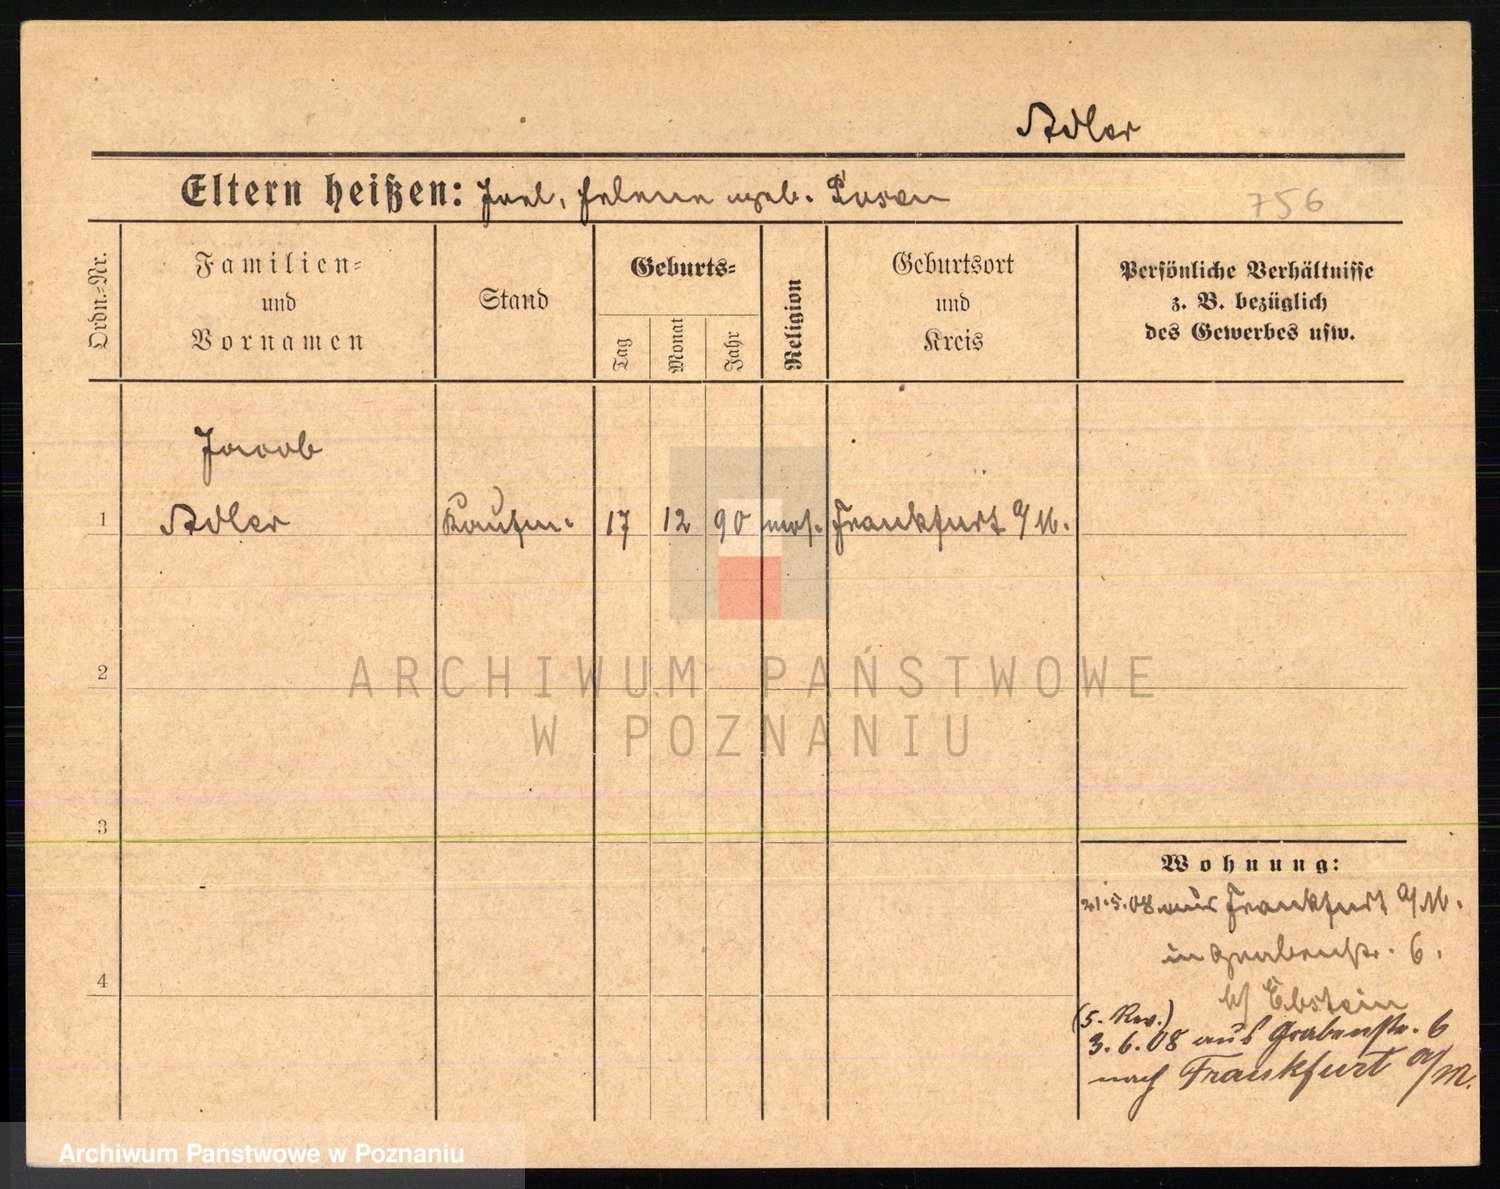 Adler
Eltern heißen: Joel, Helene geb. Posen
756
Ordn.-Nr.
Familien-
und
Vornamen
Stand
Geburts-
Tag
Monat
Jahr
Religion
Geburtsort
und
Kreis
Persönliche Verhältnisse
z. B. bezüglich
des Gewerbes usw.
Jacob
1 Adler Kaufm. 17 12 90 mos. Frankfurt a/M.
2
3
4
ARCHIWUM PAŃSTWOWE
W POZNANIU
Wohnung:
21.5.08 aus Frankfurt a/M.
in Grabenstr. 6.
b/ Ebstein
(5. Rev.)
3.6.08 aus Grabenstr. 6
nach Frankfurt a/M.
Archiwum Państwowe w Poznaniu